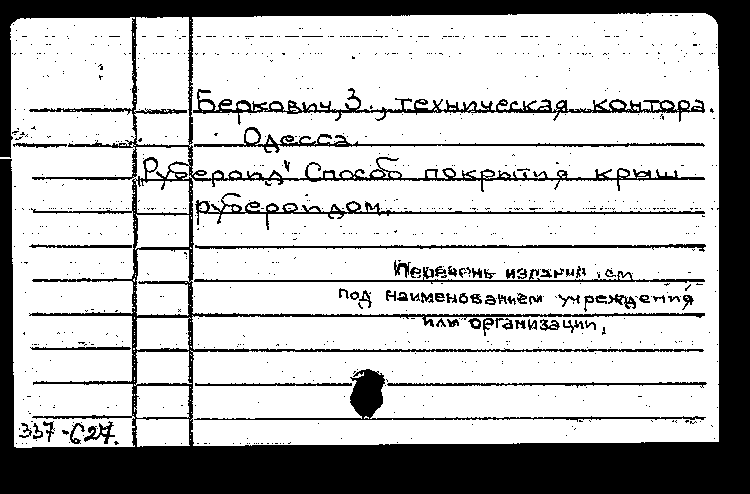 Беркович, З., техническая контора.
Одесса.
„Рубероид" Способ покрытия крыш
рубероидом.
Перечень изданий см
под наименованием учреждения
или организации.
337-627.